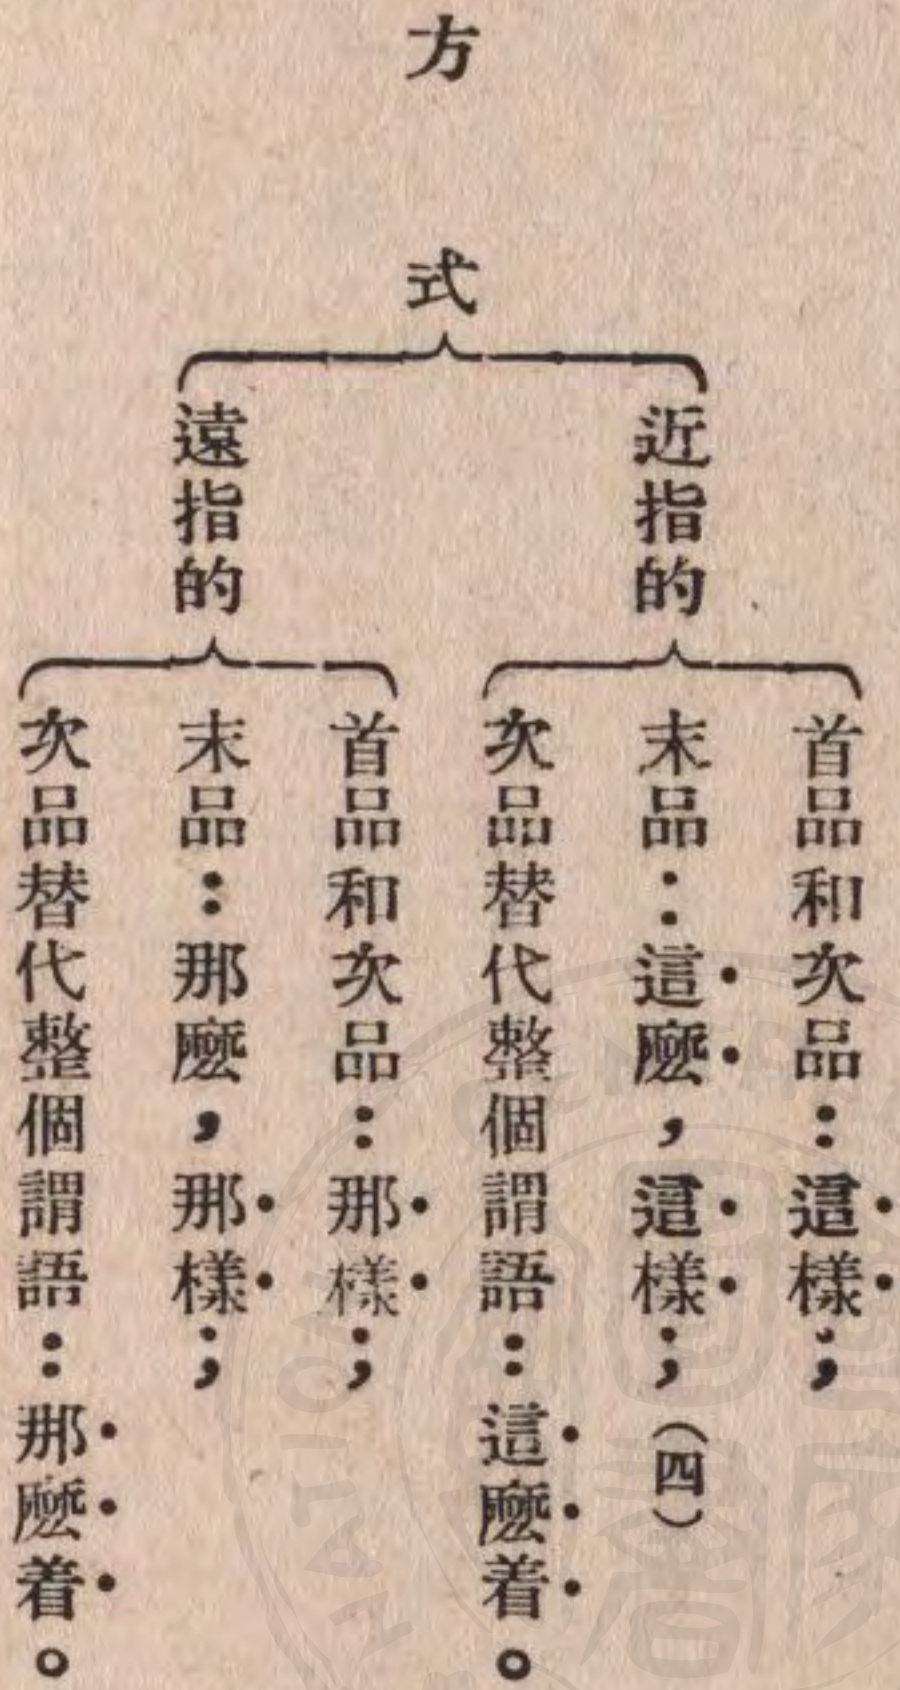 方式
近指的
首品和次品：這樣；
末品：這麼，這樣；（四）
次品替代整個謂語：這麼着。
遠指的
首品和次品：那樣；
末品：那麼，那樣；
次品替代整個謂語：那麼着。